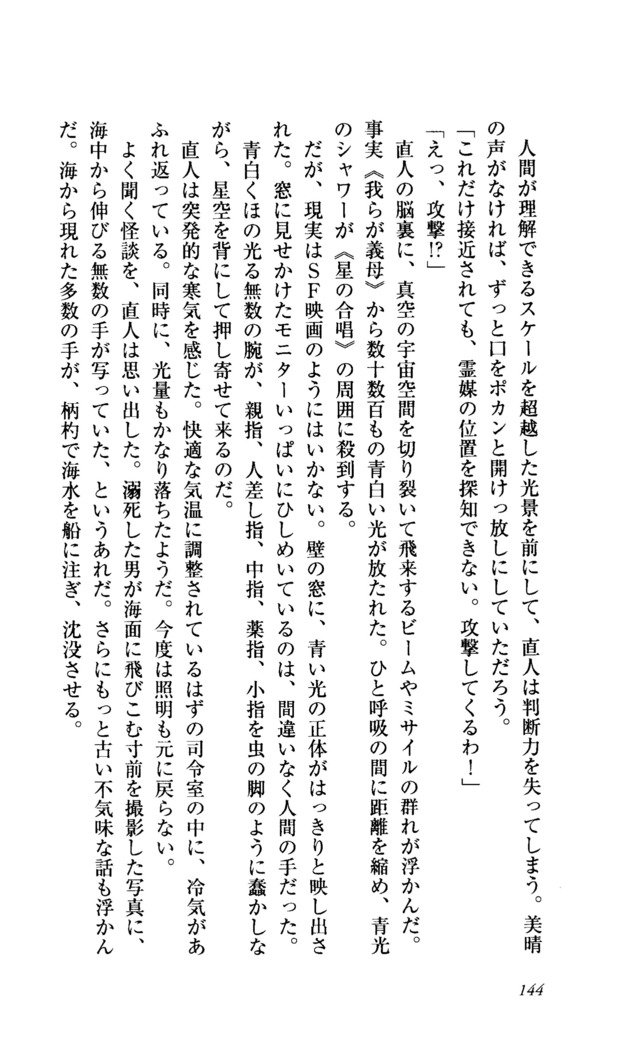 人間が理解できるスケールを超越した光景を前にして、直人は判断力を失ってしまう。美晴
の声がなければ、ずっと口をポカンと開けっ放しにしていただろう。
「これだけ接近されても、霊媒の位置を探知できない。攻撃してくるわ！」
「えっ、攻撃!?」
直人の脳裏に、真空の宇宙空間を切り裂いて飛来するビームやミサイルの群れが浮かんだ。
事実《我らが義母》から数十数百もの青白い光が放たれた。ひと呼吸の間に距離を縮め、青光
のシャワーが《星の合唱》の周囲に殺到する。
だが、現実はＳＦ映画のようにはいかない。壁の窓に、青い光の正体がはっきりと映し出さ
れた。窓に見せかけたモニターいっぱいにひしめいているのは、間違いなく人間の手だった。
青白くほの光る無数の腕が、親指、人差し指、中指、薬指、小指を虫の脚のように蠢かしな
がら、星空を背にして押し寄せて来るのだ。
直人は突発的な寒気を感じた。快適な気温に調整されているはずの司令室の中に、冷気があ
ふれ返っている。同時に、光量もかなり落ちたようだ。今度は照明も元に戻らない。
よく聞く怪談を、直人は思い出した。溺死した男が海面に飛びこむ寸前を撮影した写真に、
海中から伸びる無数の手が写っていた、というあれだ。さらにもっと古い不気味な話も浮かん
だ。海から現れた多数の手が、柄杓で海水を船に注ぎ、沈没させる。
144